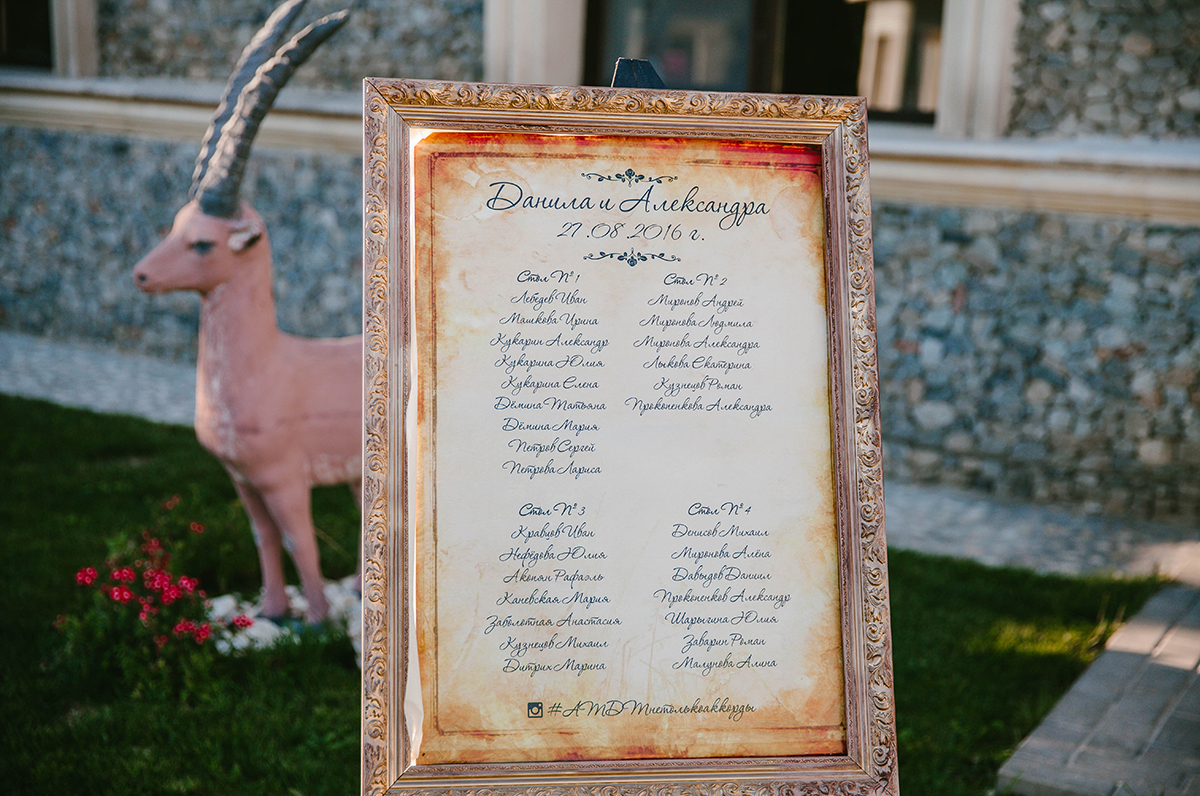 Данила и Александра
27.08.2016 г.
Стол №1
Лебедев Иван
Машкова Ирина
Кукарин Александр
Кукарина Юлия
Кукарина Елена
Дёмина Татьяна
Дёмина Мария
Петров Сергей
Петрова Лариса
Стол №2
Миронов Андрей
Миронова Людмила
Миронова Александра
Лыкова Екатерина
Кузнецов Роман
Прокопенкова Александра
Стол №3
Кравцов Иван
Нефёдова Юлия
Акопян Рафаэль
Каневская Мария
Заболотная Анастасия
Кузнецов Михаил
Дитрих Марина
Стол №4
Денисов Михаил
Миронова Алёна
Давыдов Даниил
Прокопенков Александр
Шарыгина Юлия
Заварин Роман
Малунова Алина
#АТДТнетолькоаккорды